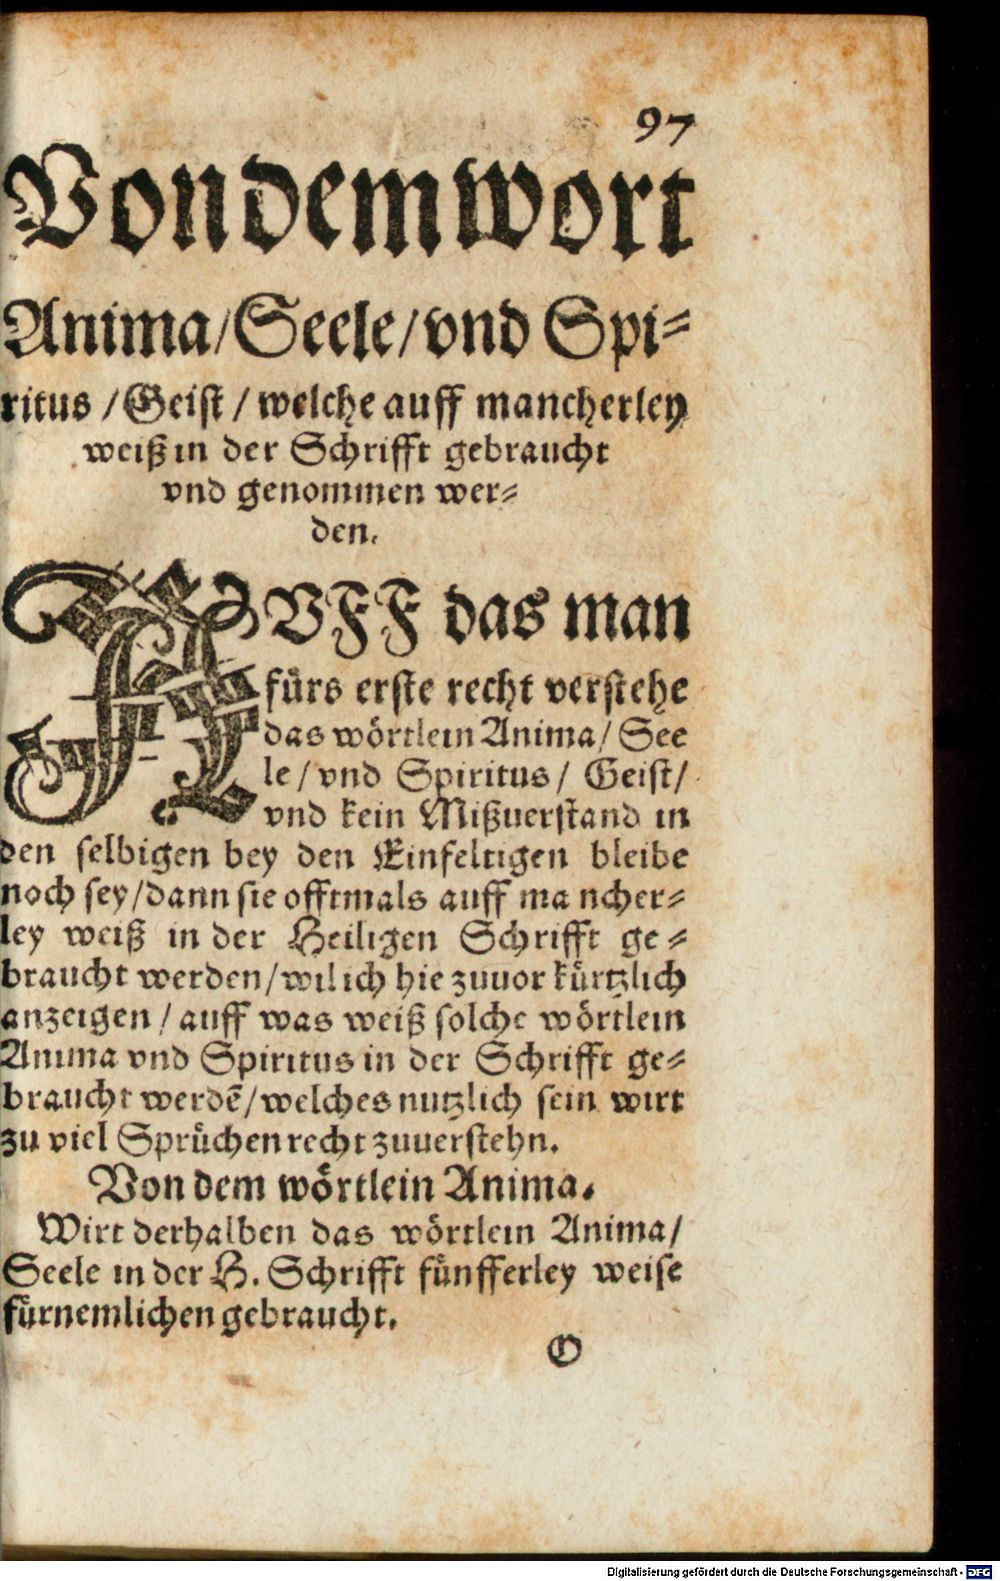 97
Von dem wort
Anima/ Seele/ vnd Spi-
ritus / Geist / welche auff mancherley
weiß in der Schrifft gebraucht
vnd genommen wer-
den.
AVFF das man
fürs erste recht verstehe
das wörtlein Anima/ See
le/ vnd Spiritus/ Geist/
vnd kein Mißuerstand in
den selbigen bey den Einfeltigen bleibe
noch sey/ dann sie offtmals auff mancher-
ley weiß in der Heiligen Schrifft ge-
braucht werden/ wil ich hie zuuor kürtzlich
anzeigen / auff was weiß solche wörtlein
Anima vnd Spiritus in der Schrifft ge-
braucht werdē/ welches nutzlich sein wirt
zu viel Sprüchen recht zuuerstehn.
Von dem wörtlein Anima.
Wirt derhalben das wörtlein Anima/
Seele in der H. Schrifft fünfferley weise
fürnemlichen gebraucht.
O
Digitalisierung gefördert durch die Deutsche Forschungsgemeinschaft - DFG